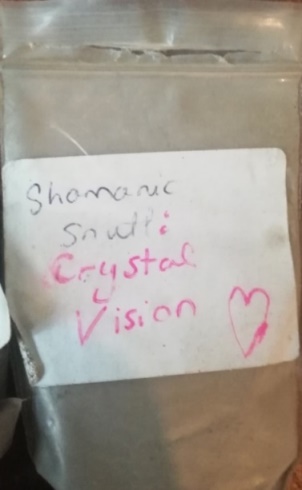 Shamanic
Snuff:
Crystal
Vision